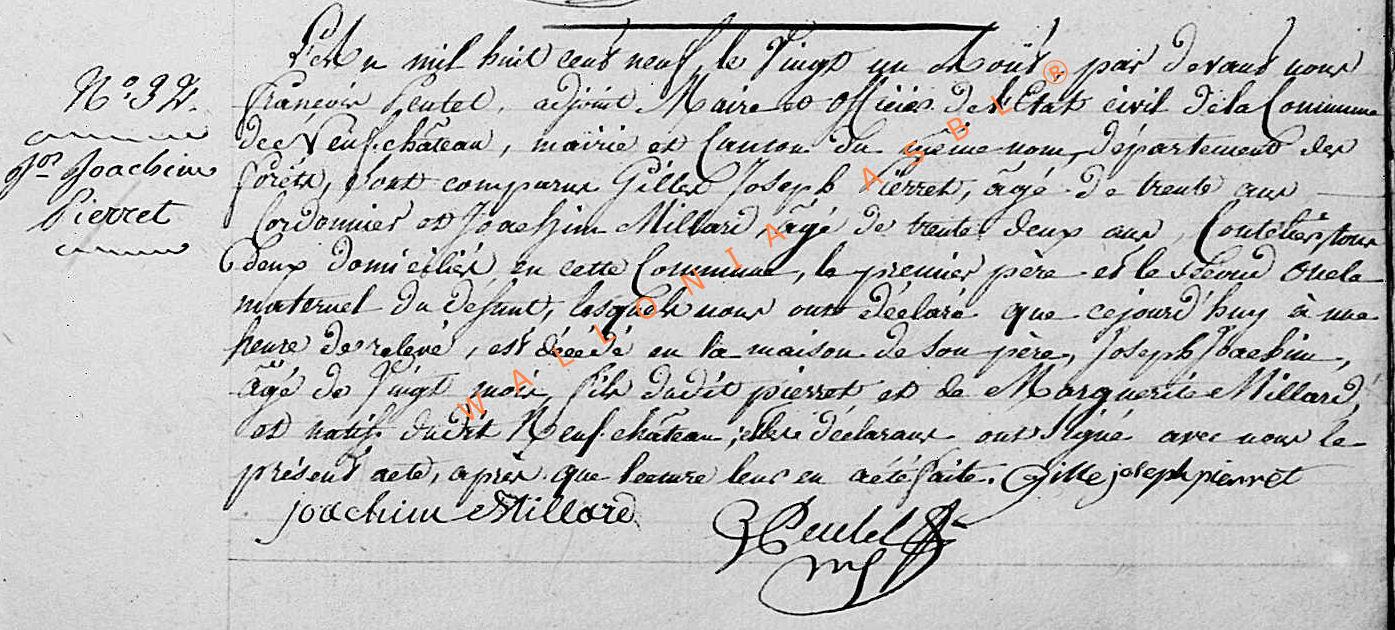 N.° 32.
Jos. Joachim
Pierret
L'An mil huit cent neuf, le Vingt un Août, par devant nous
François Peutel, adjoint Maire et Officier de l'Etat civil de la Commune
de Neufchâteau, mairie et Canton du même nom, département des
forêts, sont comparus Gilles Joseph Pierret, âgé de trente ans
Cordonnier et Joachim Millard, âgé de trente deux ans, Coutelier, tous
deux domiciliés en cette Commune, le premier père et le second oncle
maternel du défunt, lesquels nous ont déclaré que cejourd'huy à une
heure de relevé, est décédé en la maison de son père, Joseph Joachim,
âgé de Vingt mois, fils dudit pierret et de Marguerite Millard,
et natif dudit Neufchâteau; les déclarans ont signé avec nous le
présent acte, après que lecture leur en a été faite. Gille joseph pierret
joachim Millard
Peutel
WALLONIA ASBL ®